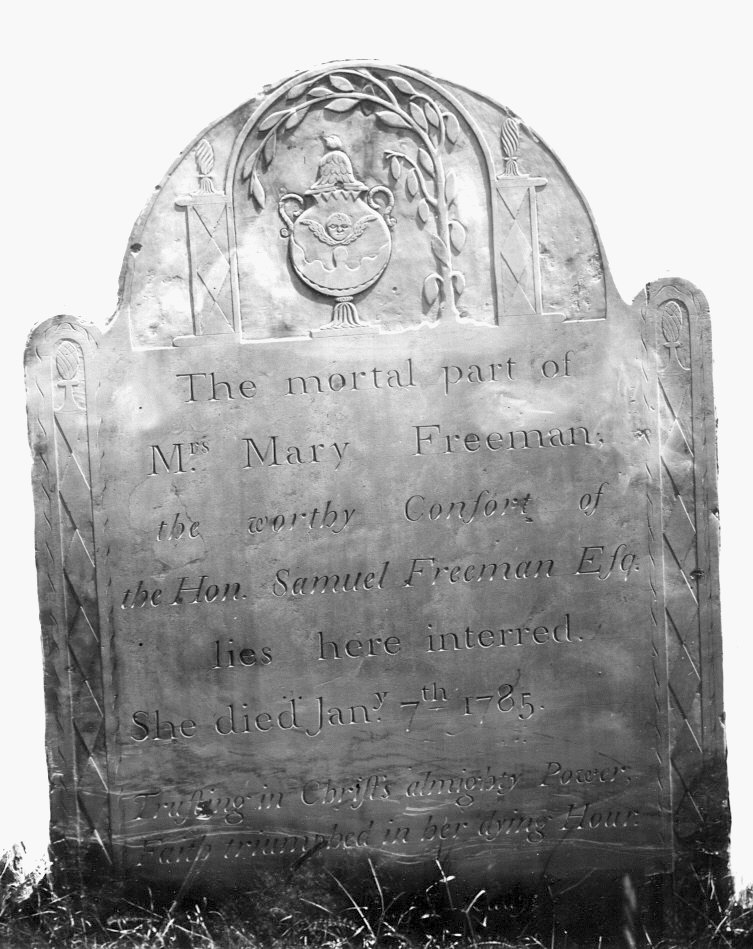 The mortal part of
Mrs. Mary Freeman,
the worthy Conſort of
the Hon. Samuel Freeman Eſq.
lies here interred.
She died Jany. 7th 1785.
Truſting in Chriſt's almighty Power,
Faith triumphed in her dying Hour.